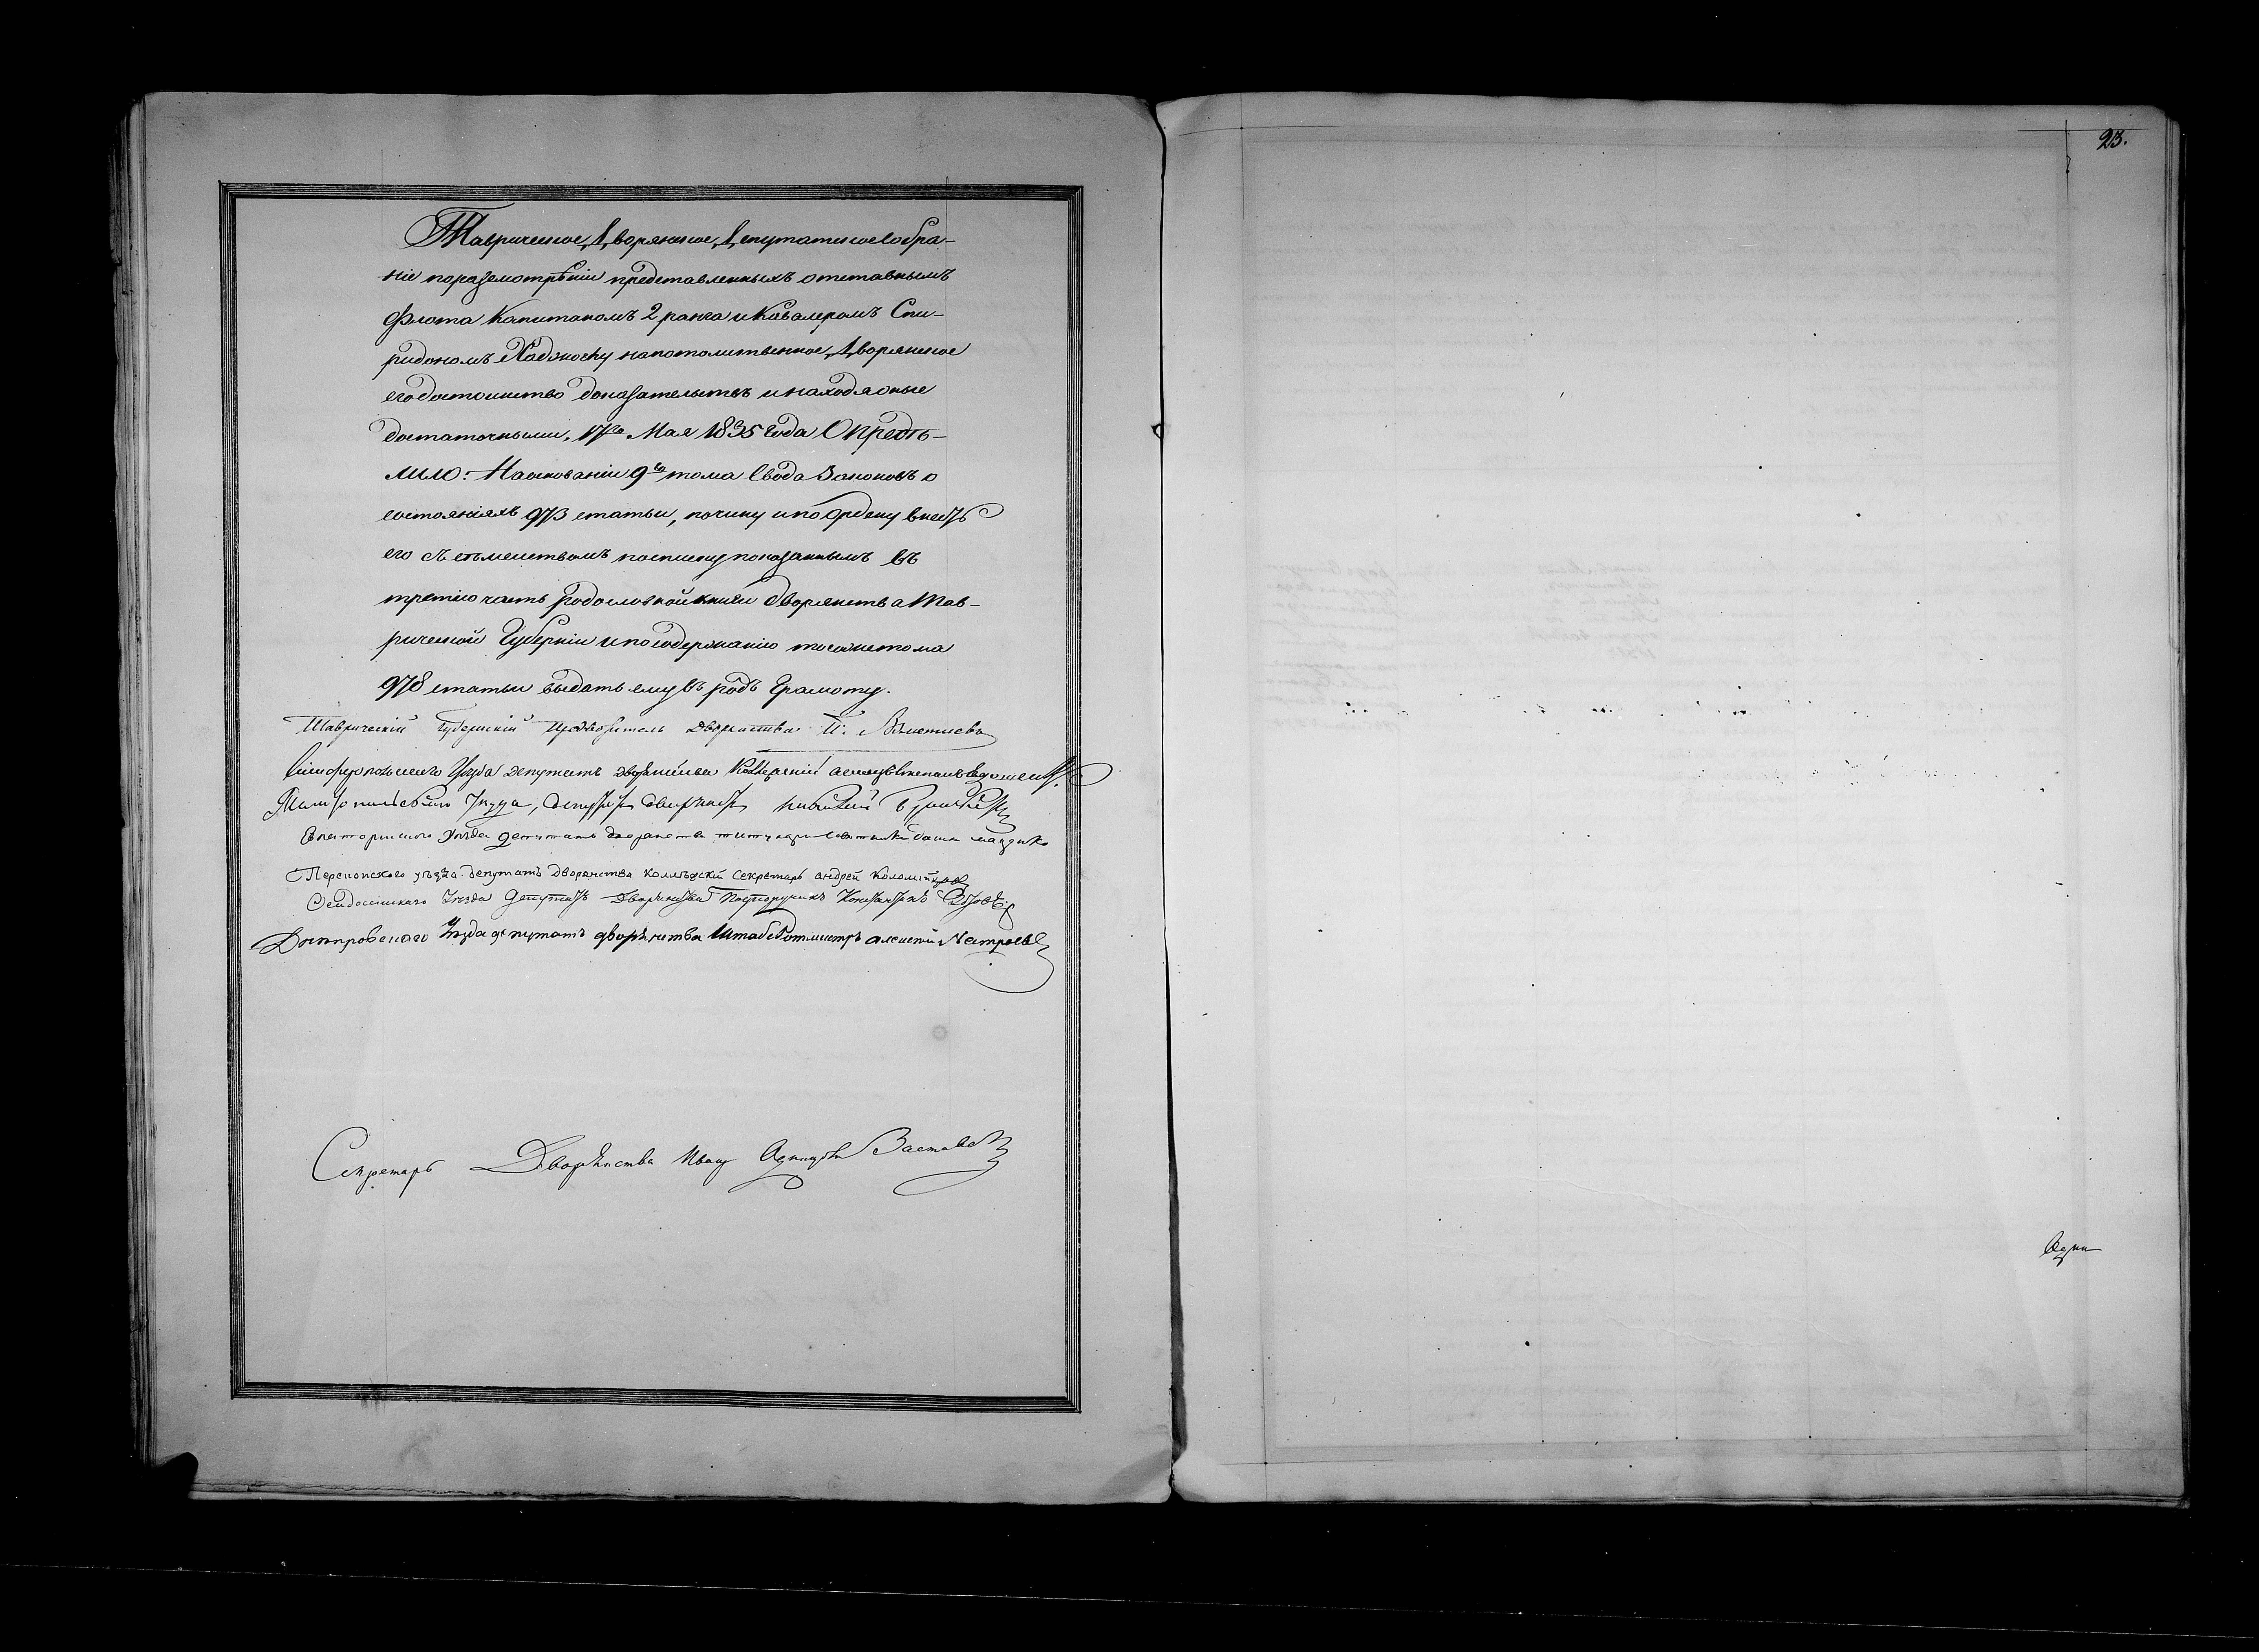 Таврическое Дворянское Депутатское собра-
ніе поразсмотрѣніи представленныхъ отставнымъ
флота Капитаномъ 2 ранга и Кавалеромъ Спи-
ридономъ напотомственное Дворянское
его достоинство доказательствъ и находя оныя
достаточными, 17го Мая 1835 года Опредѣ-
лило: На основаніи 9го тома Свода Законовъ о
состояніяхъ 973 статьи, по чину и по Ордену внесть
его съ сѣмействомъ посписку показаннымъ въ
третію часть родословной книги дворянства Тав-
рической Губерніи и по содержанію тогоже тома
978 статьи выдать ему въ родъ Грамоту.
Таврическій Губернскій Предводитель Дворянства
Симферопольскаго Уѣзда депутатъ дворянства Коллежскій
Мелитопольскаго Уѣзда, депутатъ дворянства
Евпаторійскаго Уѣзда депутатъ дворянства титулярн
Перекопского уѣзда депутатъ дворянства коллѣжскій секретарь андрей
Феодосійскаго Уѣзда Депутатъ Дворянства Подпоручикъ
Днѣпровскаго Уѣзда депутатъ дворянства Штабсъ Ротмистръ алексѣй
Секретарь Дворянства Иванъ
23.